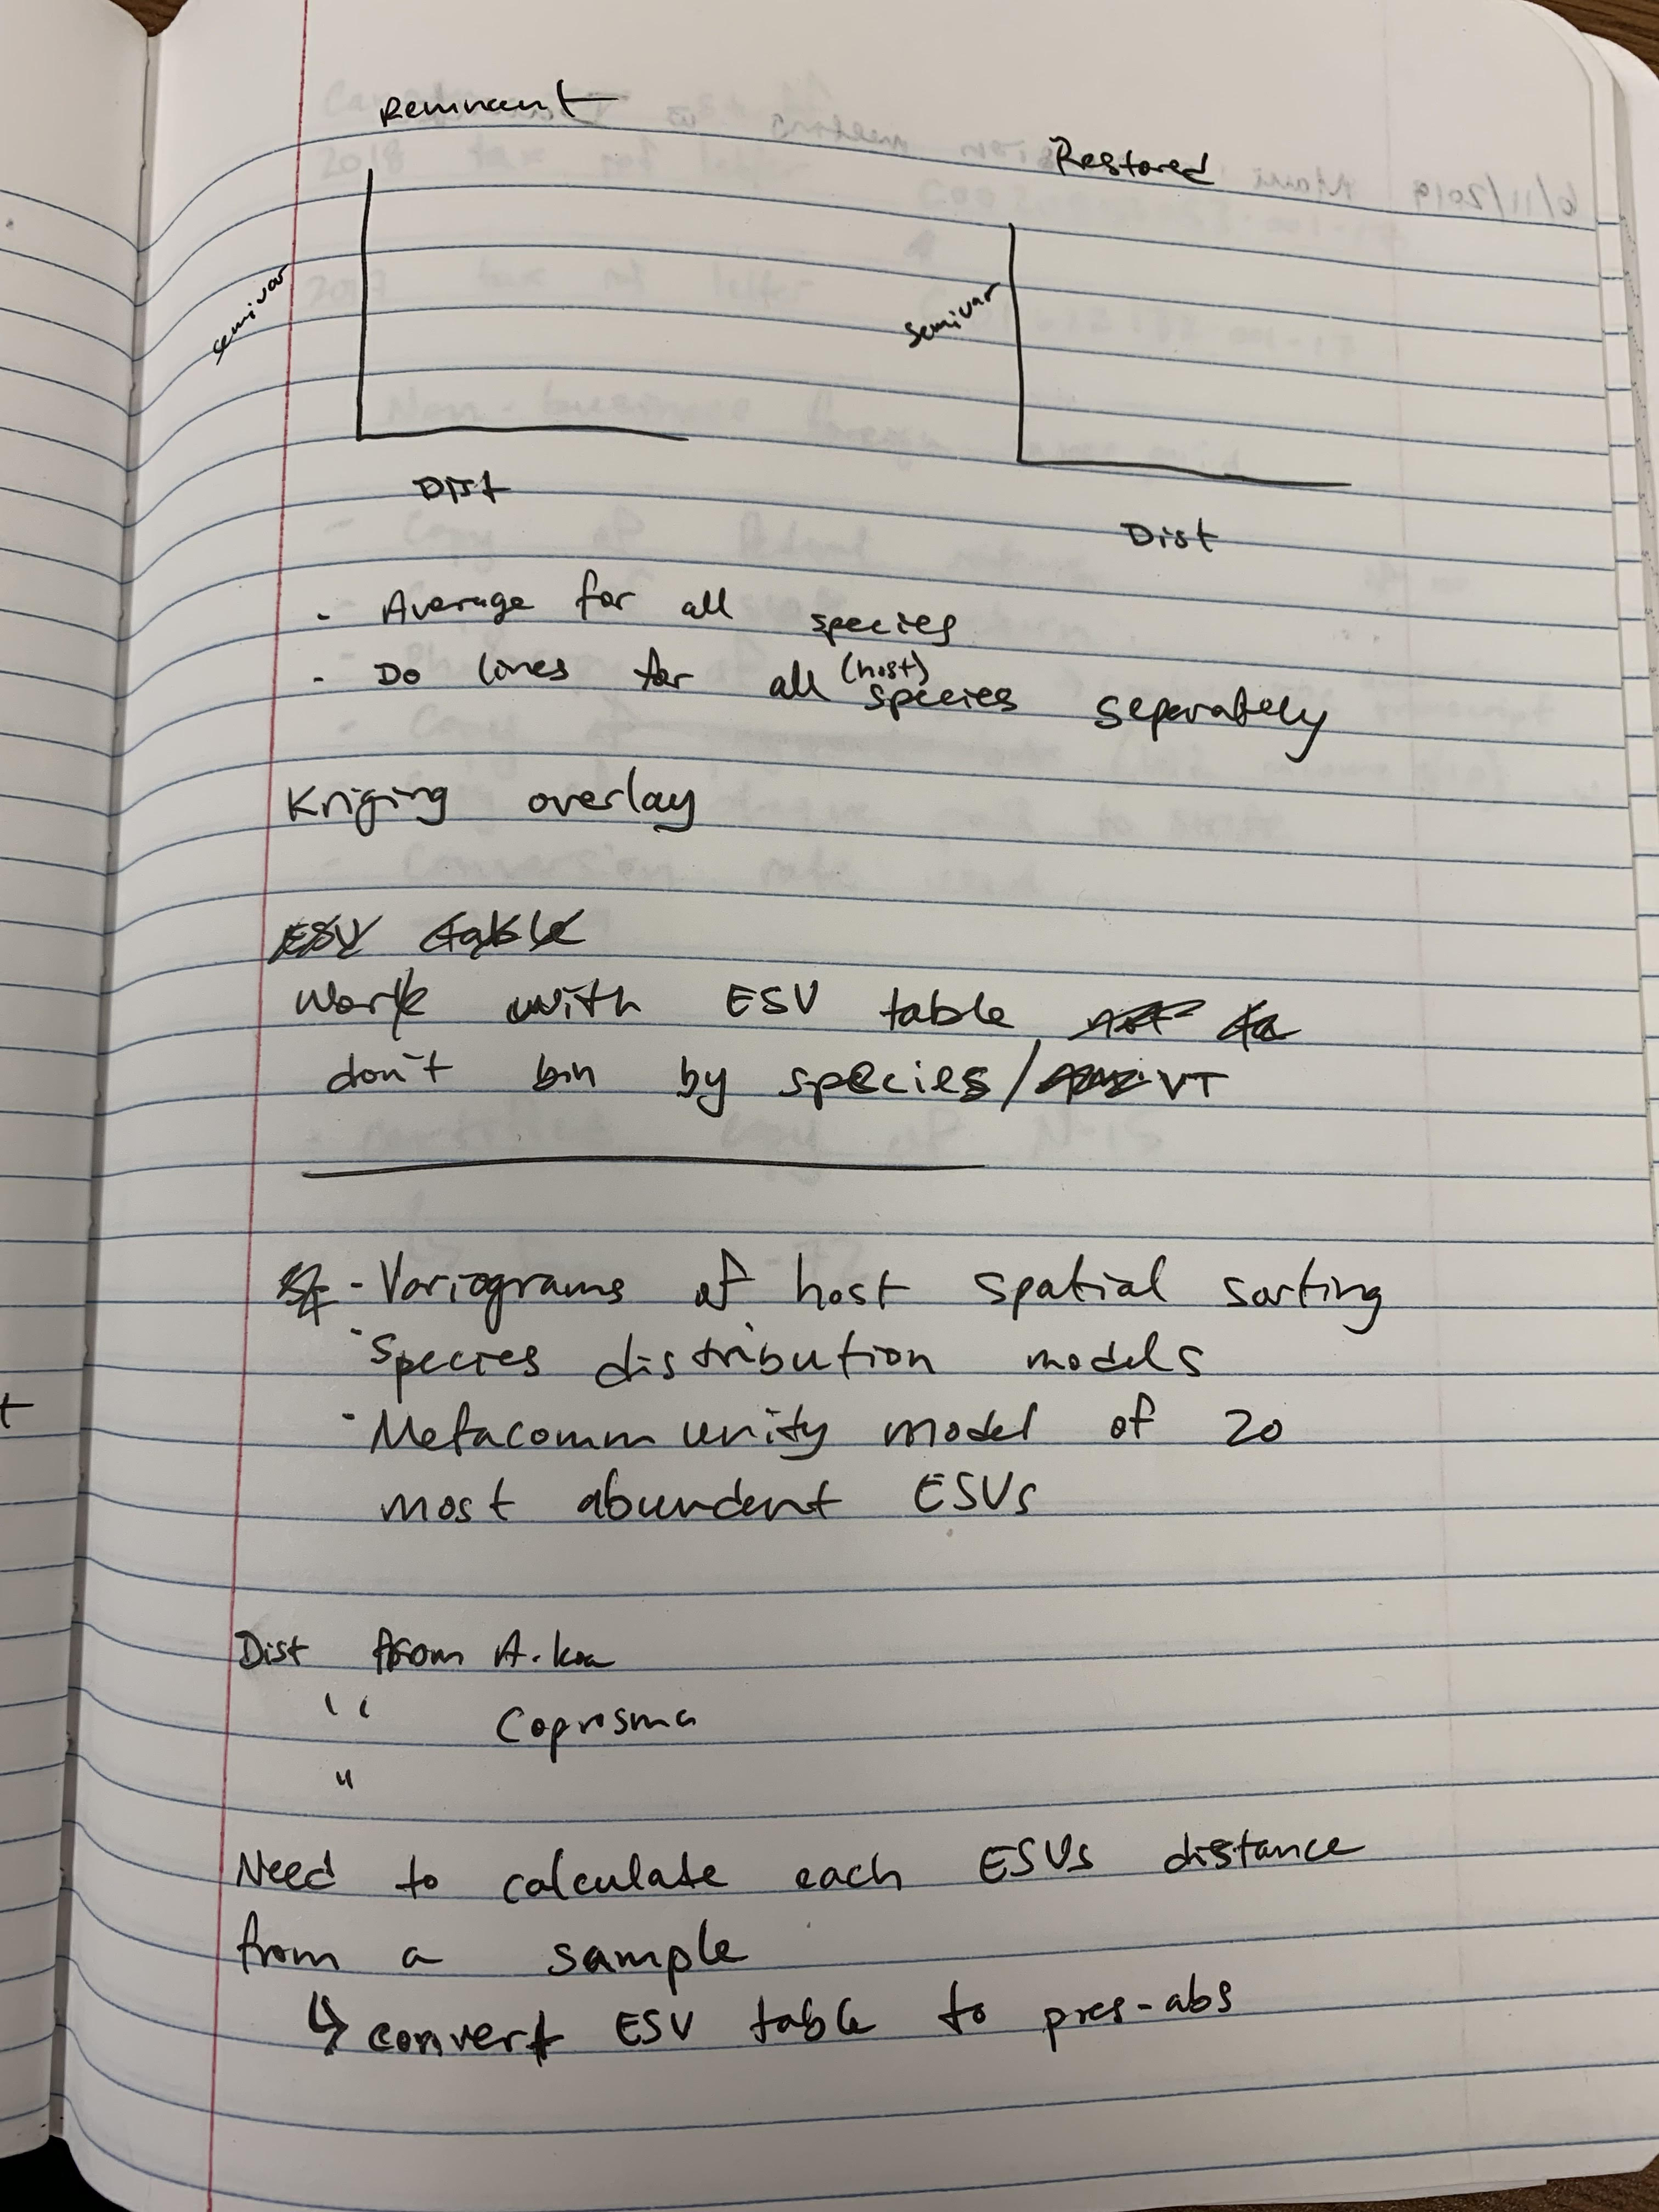 Remnant
Restored
semivar
semivar
Dist
Dist
- Average for all species
- Do lines for all (host) species separately
Kriging overlay
ESV table
Work with ESV table
don't bin by species/ VT
- Variograms of host spatial sorting
- Species distribution models
- Metacommunity model of 20
most abundent ESVs
Dist from A. koa
" Coprosma
"
Need to calculate each ESVs distance
from a sample
↳ convert ESV table to pres-abs